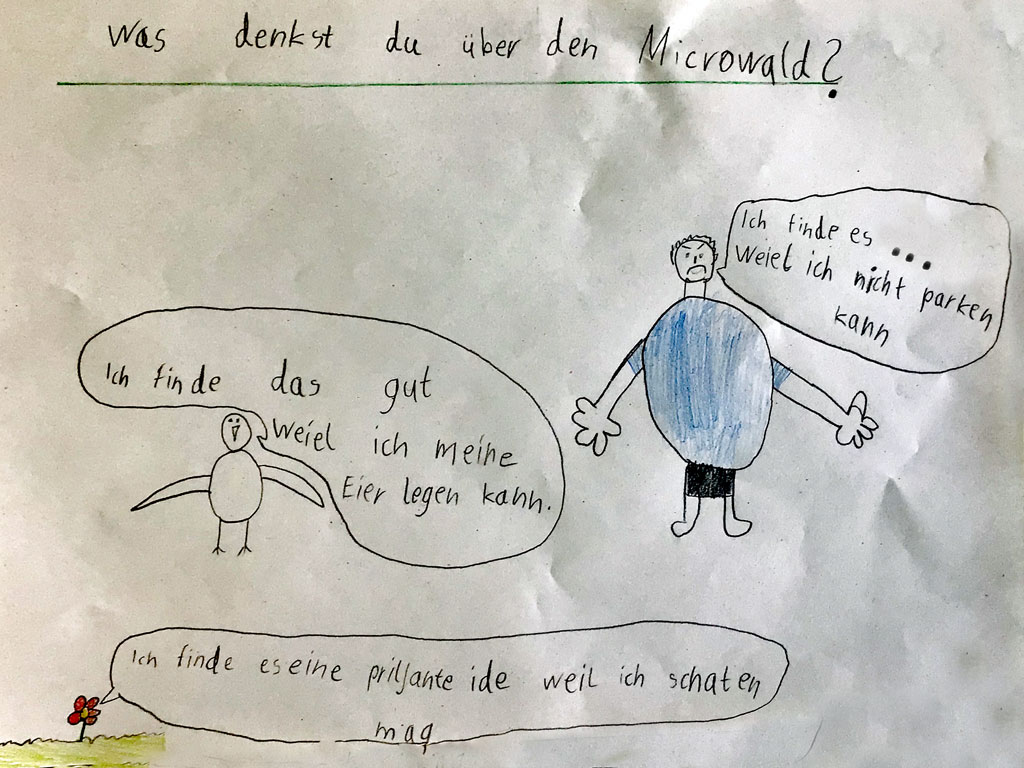 Was denkst du über den Microwald?
Ich finde es ....
Weiel ich nicht parken
kann
Ich finde das gut
Weiel ich meine
Eier legen kann.
Ich finde es eine priljante ide weil ich schaten
mag